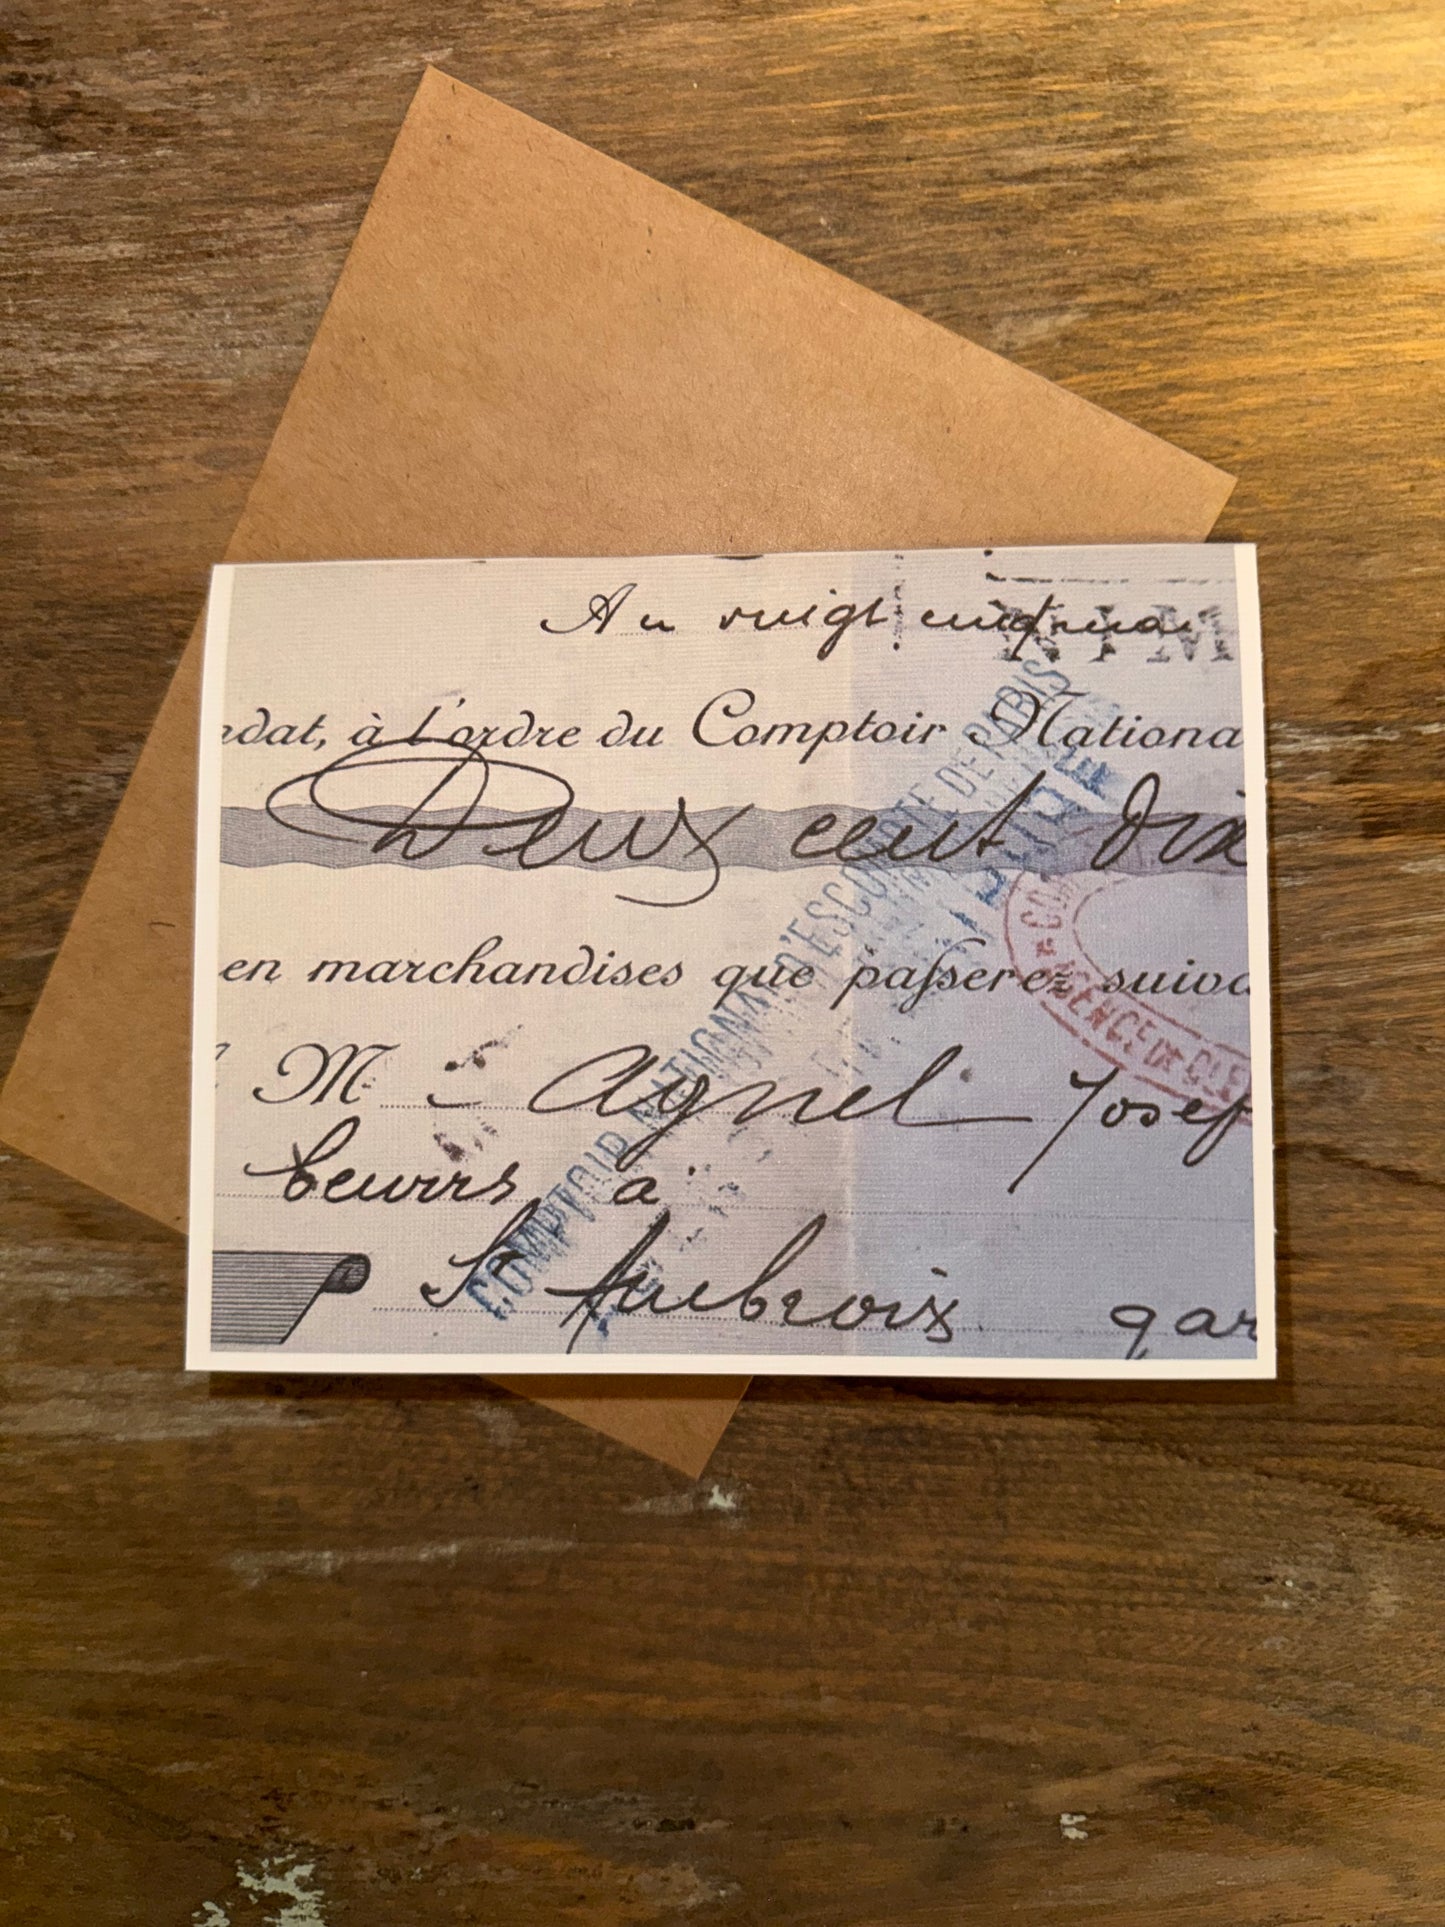 Au vingt cinq mai
ndat, à l'ordre du Comptoir Nationa
Deux cent dix
en marchandises que passerez suiva
M Agnel Josep
beurrs à
St Aubroix gar
COMPTOIR NATIONAL D'ESCOMPTE DE PARIS
AGENCE DE